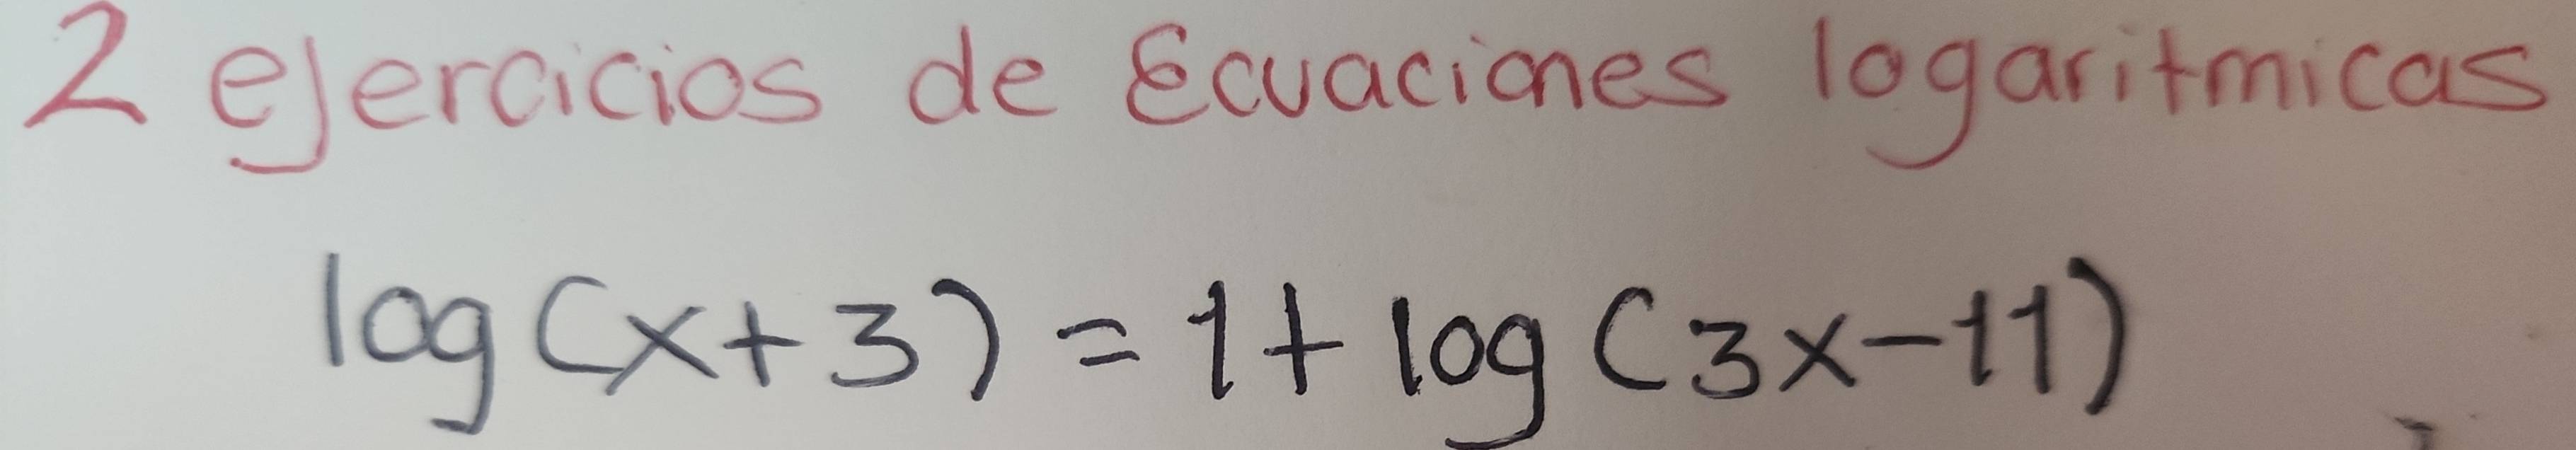 2 ejercicios de Ecuaciones logaritmicas
log(x+3) = 1 + log(3x-11)